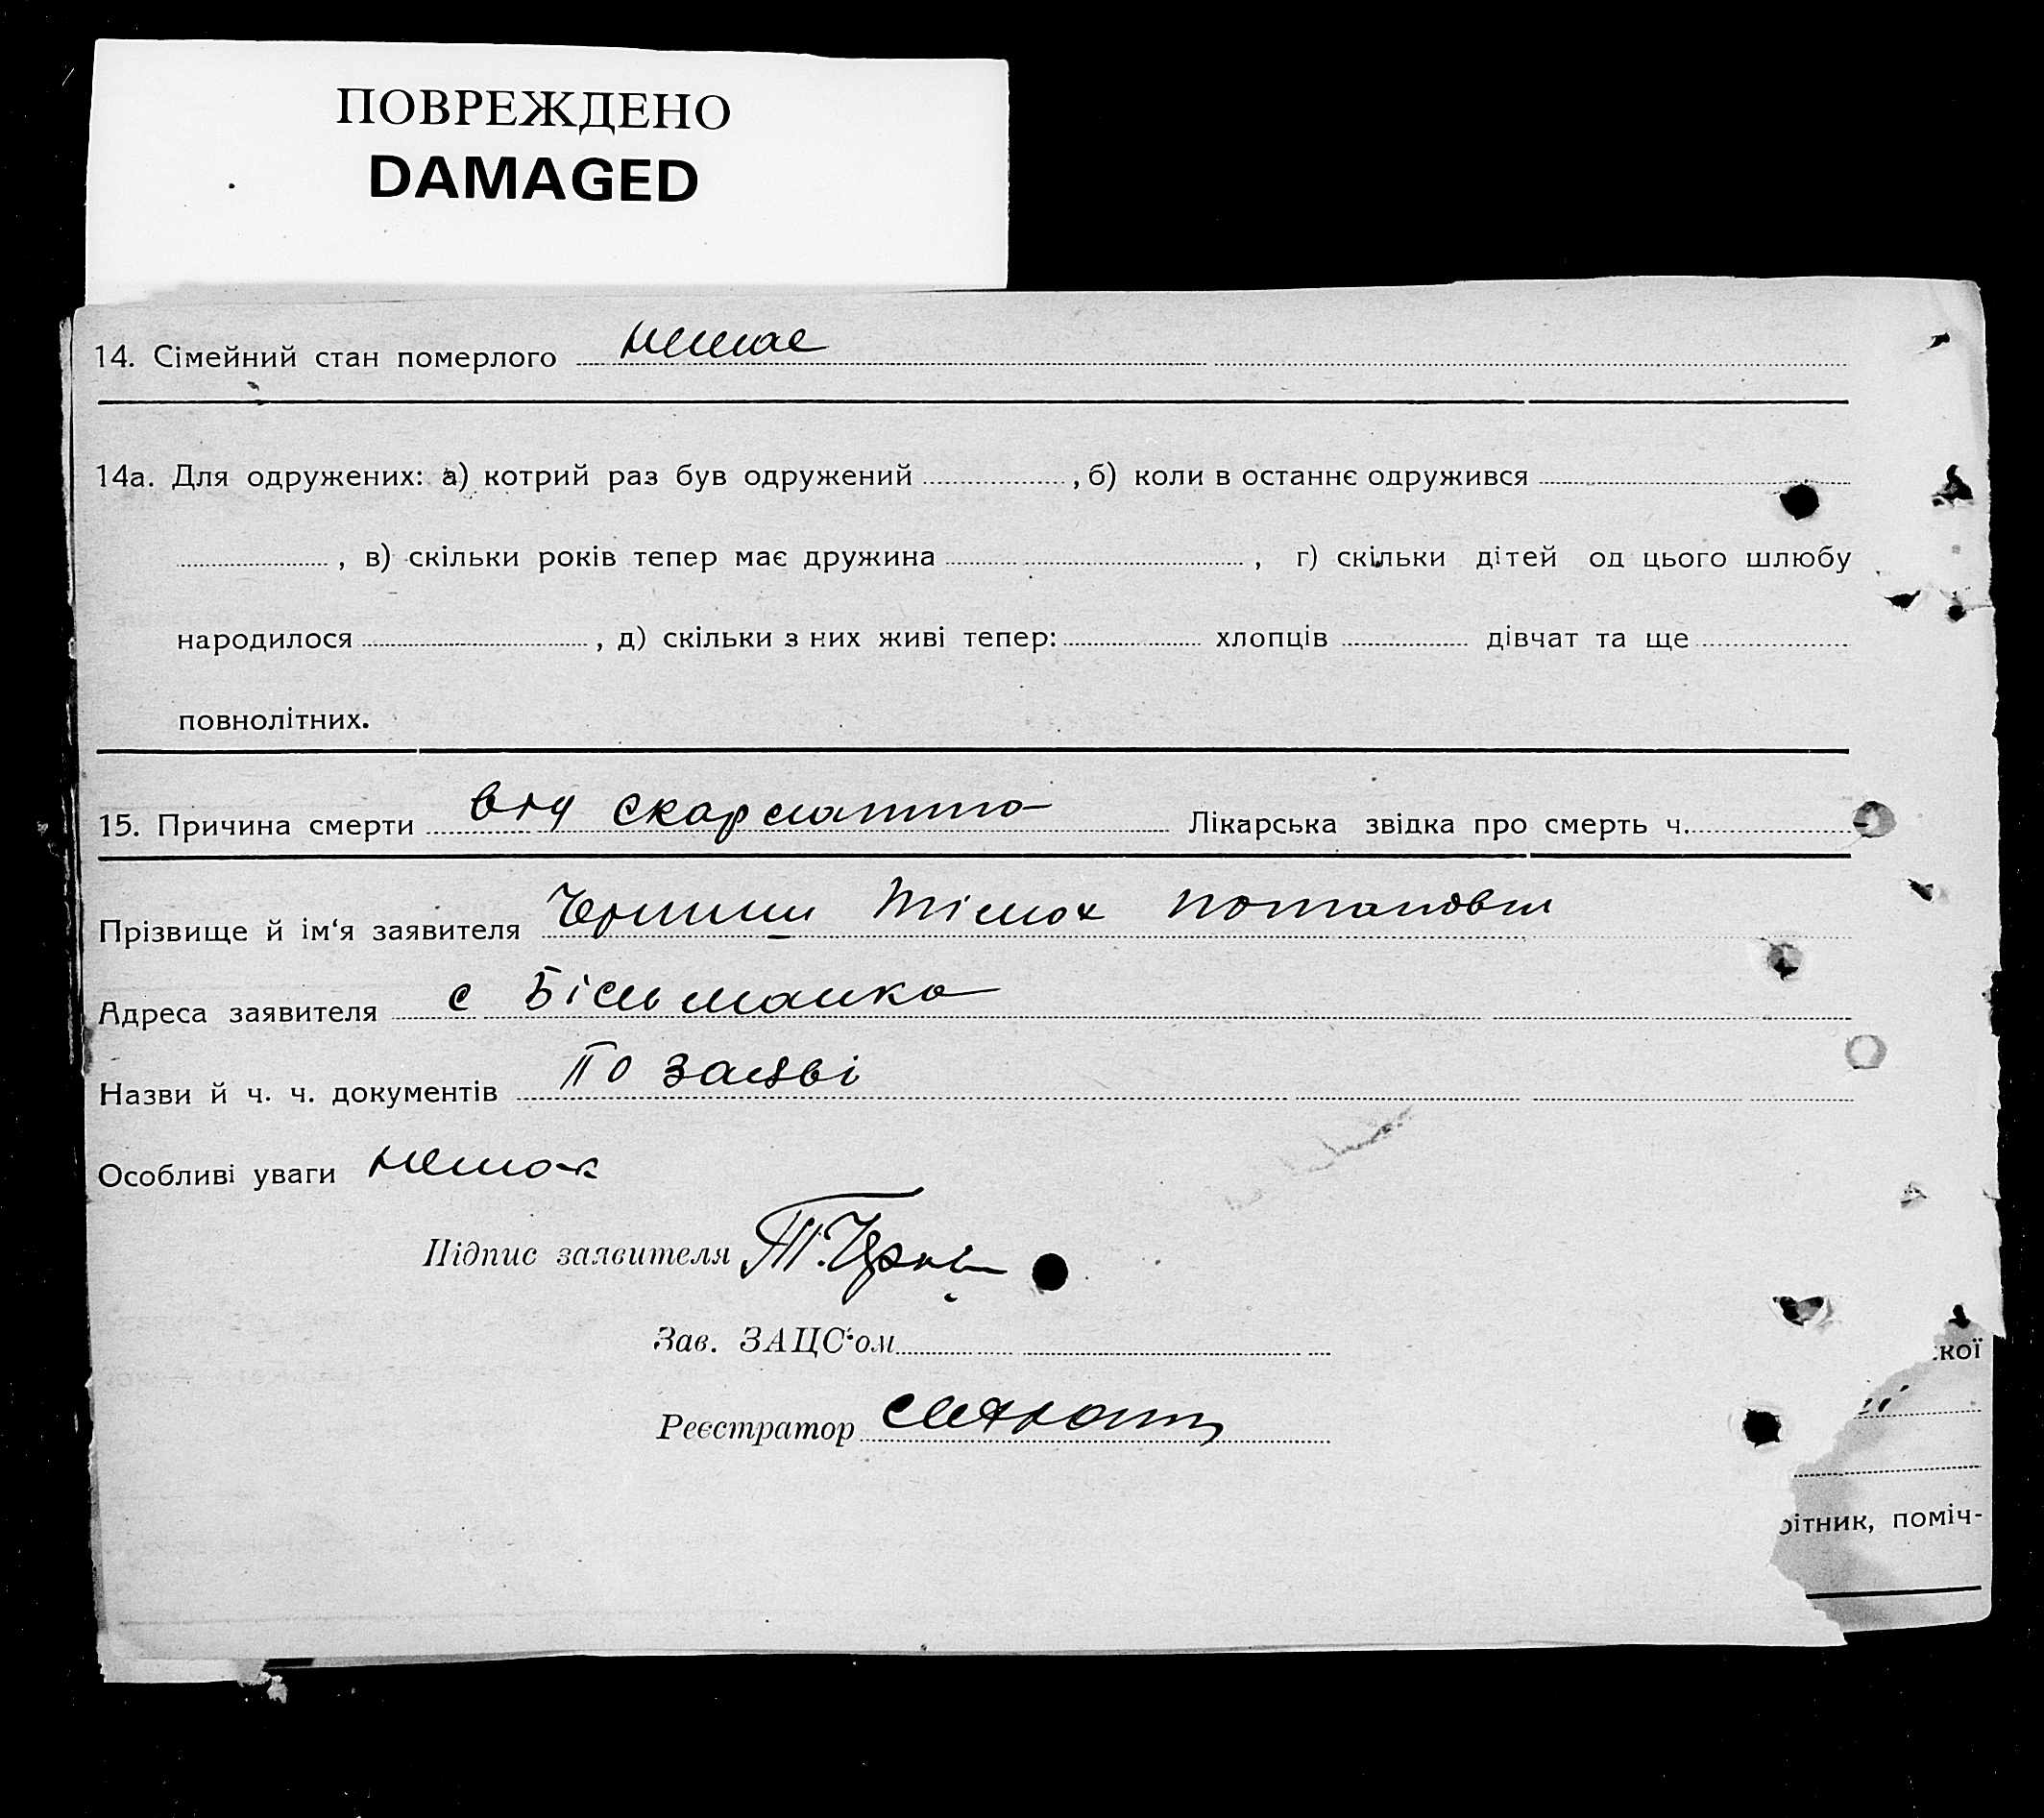 ПОВРЕЖДЕНО
DAMAGED
14. Сімейний стан померлого немае
14а. Для одружених: а) котрий раз був одружений , б) коли в останнє одружився
, в) скільки років тепер має дружина , г) скільки дітей од цього шлюбу
народилося , д) скільки з них живі тепер: хлопців дівчат та ще
повнолітних.
15. Причина смерти від скарлатто Лікарська звідка про смерть ч.
Прізвище й ім‘я заявителя Тімох Потапович
Адреса заявителя с Більманка
Назви й ч. ч. документів По заяві
Особливі уваги немає
Підпис заявителя
Зав. ЗАЦС‘ом
кої
Реєстратор
рітник, поміч-